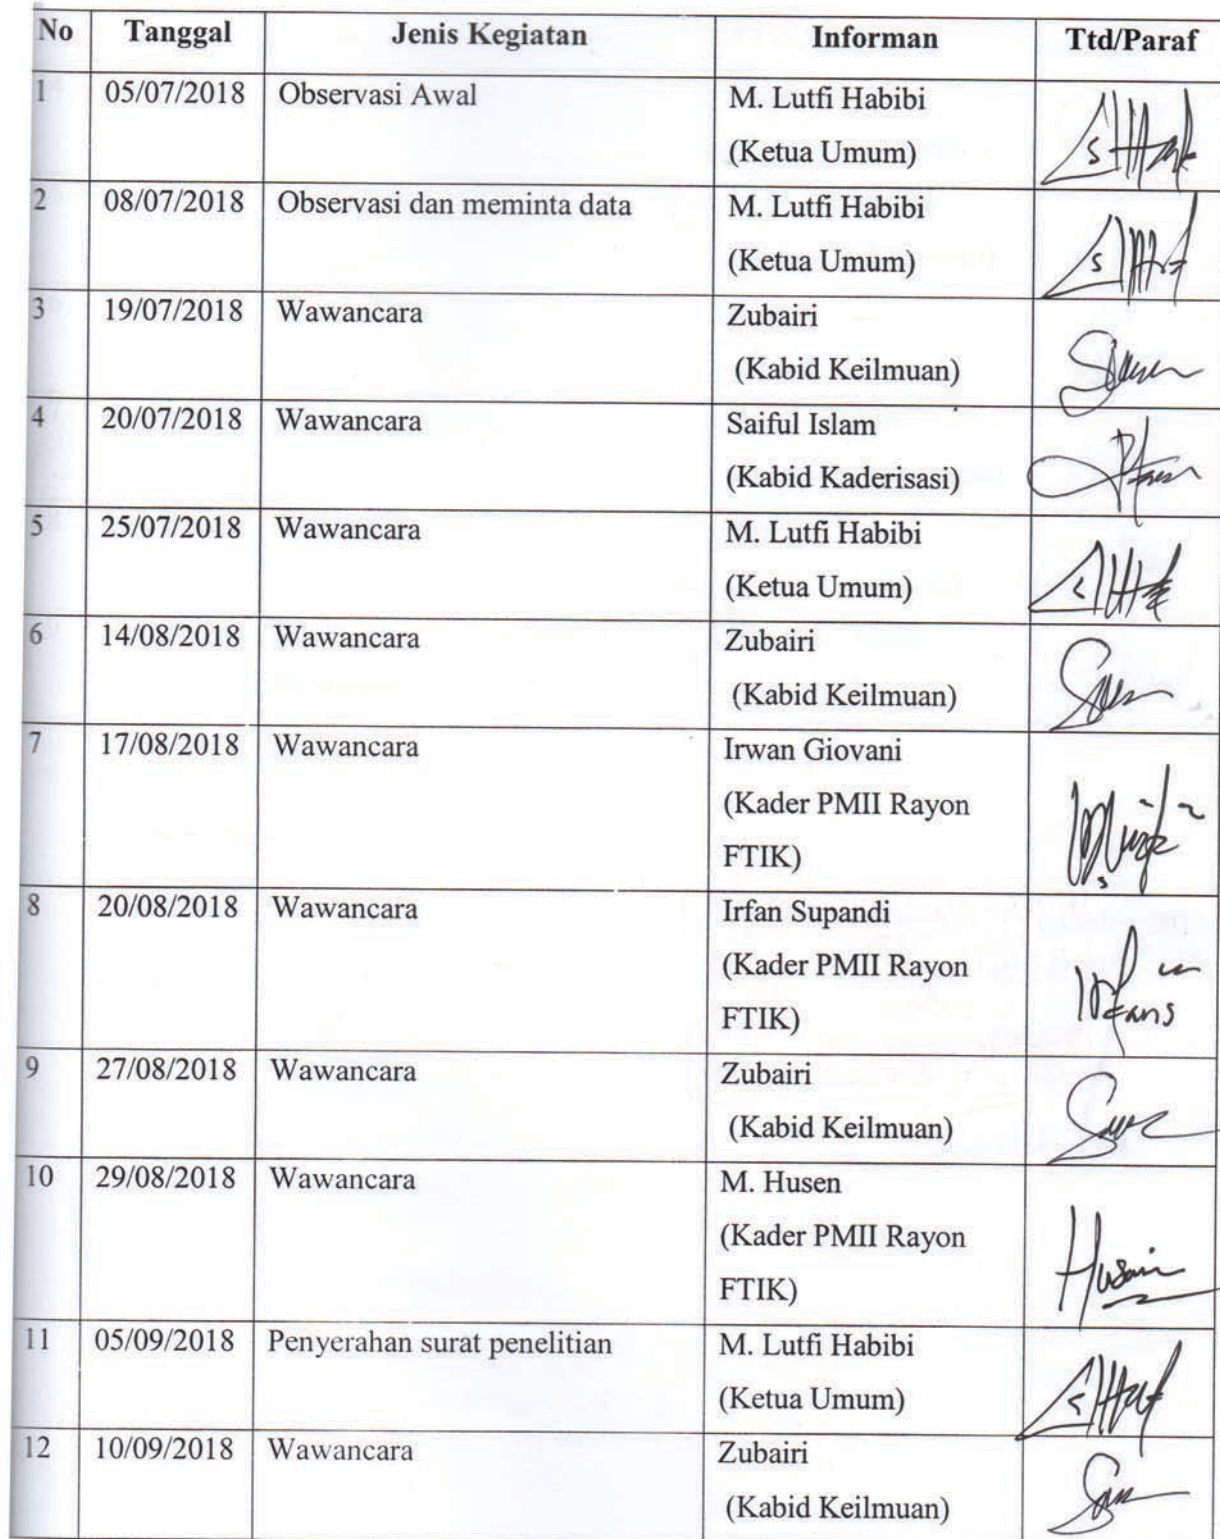 No Tanggal Jenis Kegiatan Informan Ttd/Paraf
1 05/07/2018 Observasi Awal M. Lutfi Habibi
(Ketua Umum)
2 08/07/2018 Observasi dan meminta data M. Lutfi Habibi
(Ketua Umum)
3 19/07/2018 Wawancara Zubairi
(Kabid Keilmuan)
4 20/07/2018 Wawancara Saiful Islam
(Kabid Kaderisasi)
5 25/07/2018 Wawancara M. Lutfi Habibi
(Ketua Umum)
6 14/08/2018 Wawancara Zubairi
(Kabid Keilmuan)
7 17/08/2018 Wawancara Irwan Giovani
(Kader PMII Rayon
FTIK)
8 20/08/2018 Wawancara Irfan Supandi
(Kader PMII Rayon
FTIK)
9 27/08/2018 Wawancara Zubairi
(Kabid Keilmuan)
10 29/08/2018 Wawancara M. Husen
(Kader PMII Rayon
FTIK)
Husain
11 05/09/2018 Penyerahan surat penelitian M. Lutfi Habibi
(Ketua Umum)
12 10/09/2018 Wawancara Zubairi
(Kabid Keilmuan)